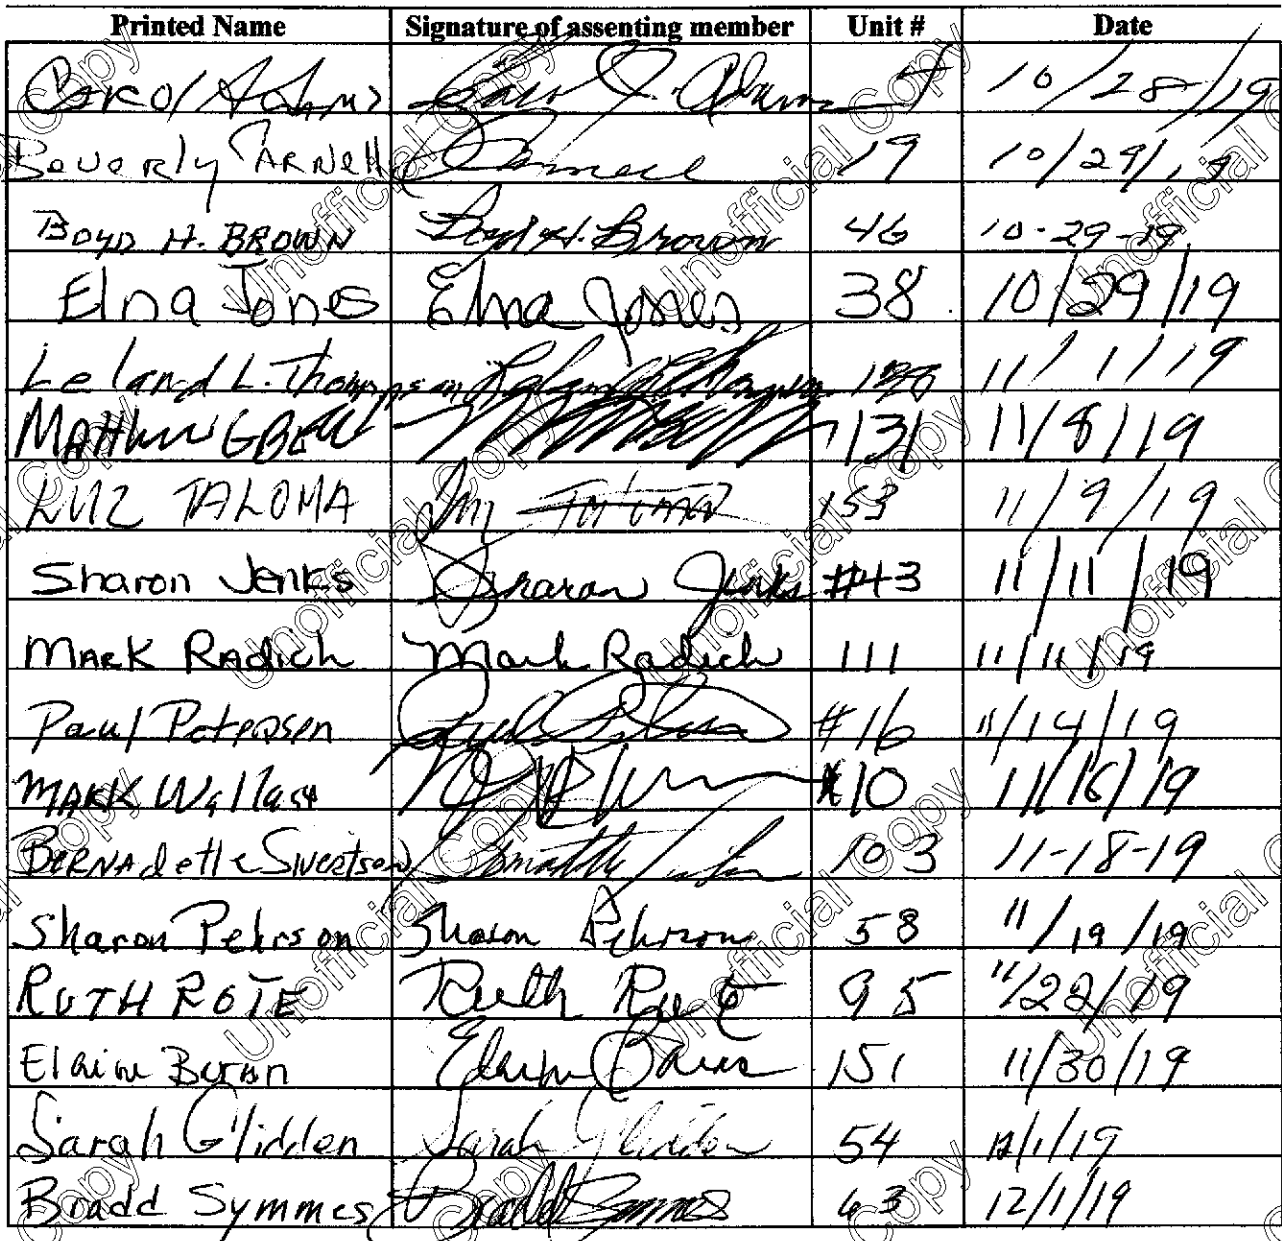 Printed Name Signature of assenting member Unit # Date
Carol Adams Carol J. Adams 4 10/28/19
Beverly Parnell Parnell 19 10/29/19
Boyd H. BROWN Boyd H. Brown 46 10-29-19
Elna Jones Elna Jones 38 10/29/19
Leland L. Thompson Leland L. Thompson 11/1/19
Matthew 131 11/8/19
LUIZ TALOMA 153 11/9/19
Sharon Jenks Sharon Jenks #43 11/11/19
Mark Radich Mark Radich 111 11/11/19
Paul Petersen #16 11/14/19
MARK Wallast 10 11/16/19
BERNAdette Sivertson 103 11-18-19
Sharon Pehrson Sharon Pehrson 58 11/19/19
RUTH ROTE Ruth Rote 95 11/22/19
Elaine 151 11/30/19
Sarah Glidden Sarah Glidden 54 12/1/19
Bradd Symmes Bradd Symmes 63 12/1/19
Unofficial Copy